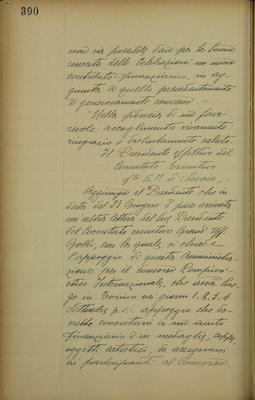 390
non sia possibile dare per la buona
riuscita delle Celebrazioni un nuovo
contributo finanziario, in ag-
giunta a quello precedentemente
e generosamente concesso. -
Nella fiducia di un favo-
revole accoglimento vivamente
ringrazio e distintamente saluto.
Il Presidente effettivo del
Comitato Esecutivo
Aggiunge il Presidente che in
data del 28 Giugno è pure arrivata
un'altra lettera del Presidente
del Comitato esecutivo Grand' Uff.
Gobbi, con la quale si chiede
l'appoggio di questa Amministra-
zione per il concorso Pompieri-
stico Internazionale, che avrà luo-
go in Torino nei giorni 1. 2. 3. 4
Settembre p. v.: appoggio che do-
vrebbe concretarsi in un aiuto
finanziario o in medaglie, coppe,
oggetti artistici da assegnarsi
ai partecipanti al Concorso.